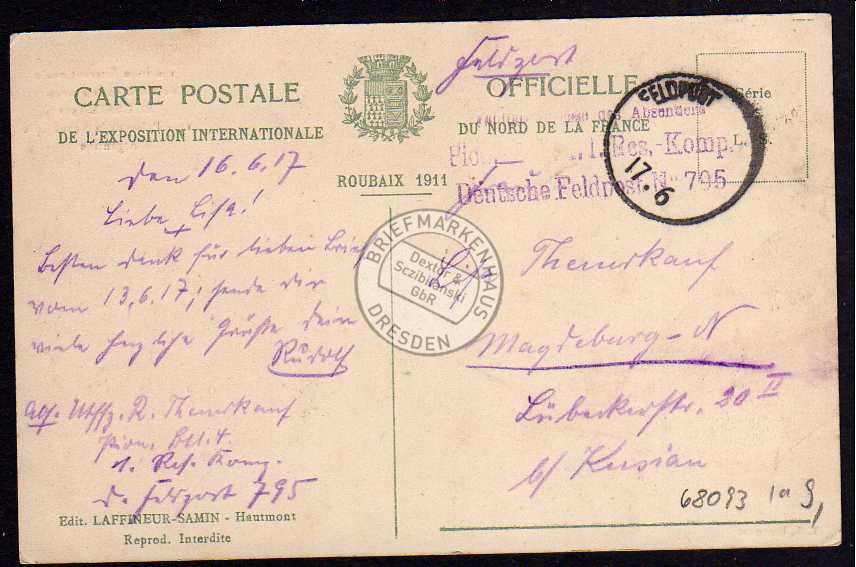 Feldpost
CARTE POSTALE OFFICIELLE
DE L'EXPOSITION INTERNATIONALE DU NORD DE LA FRANCE
ROUBAIX 1911
Série
L. S.
FELDPOST
17.6
des Absenders
1. Res.-Komp.
Deutsche Feldpost No 795
den 16.6.17
Liebe Lisa!
Besten dank für lieben Brief
vom 13.6.17; sende dir
viele herzliche Grüße dein
Rudolf
Abs. Utffz. R. Themskauf
Pion. Btl. 4.
1. Res. Komp.
d. Feldpost 795
Themskauf
Magdeburg-N
Lübeckerstr. 20 II
b/ Kusian
68093 1a 9,
BRIEFMARKENHAUS
Dextur &
Sczibilanski
GbR
DRESDEN
Edit. LAFFINEUR-SAMIN - Hautmont
Reprod. Interdite